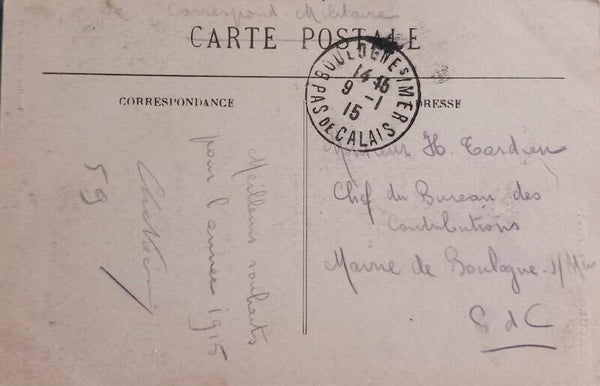 Correspond Militaire
CARTE POSTALE
BOULOGNE S/MER
14 45
9 -1
15
PAS DE CALAIS
CORRESPONDANCE
ADRESSE
Meilleurs souhaits
pour l'année 1915
59
Monsieur H. Tardieu
Chef du Bureau des
Contributions
Mairie de Boulogne-s/Mer
P d C